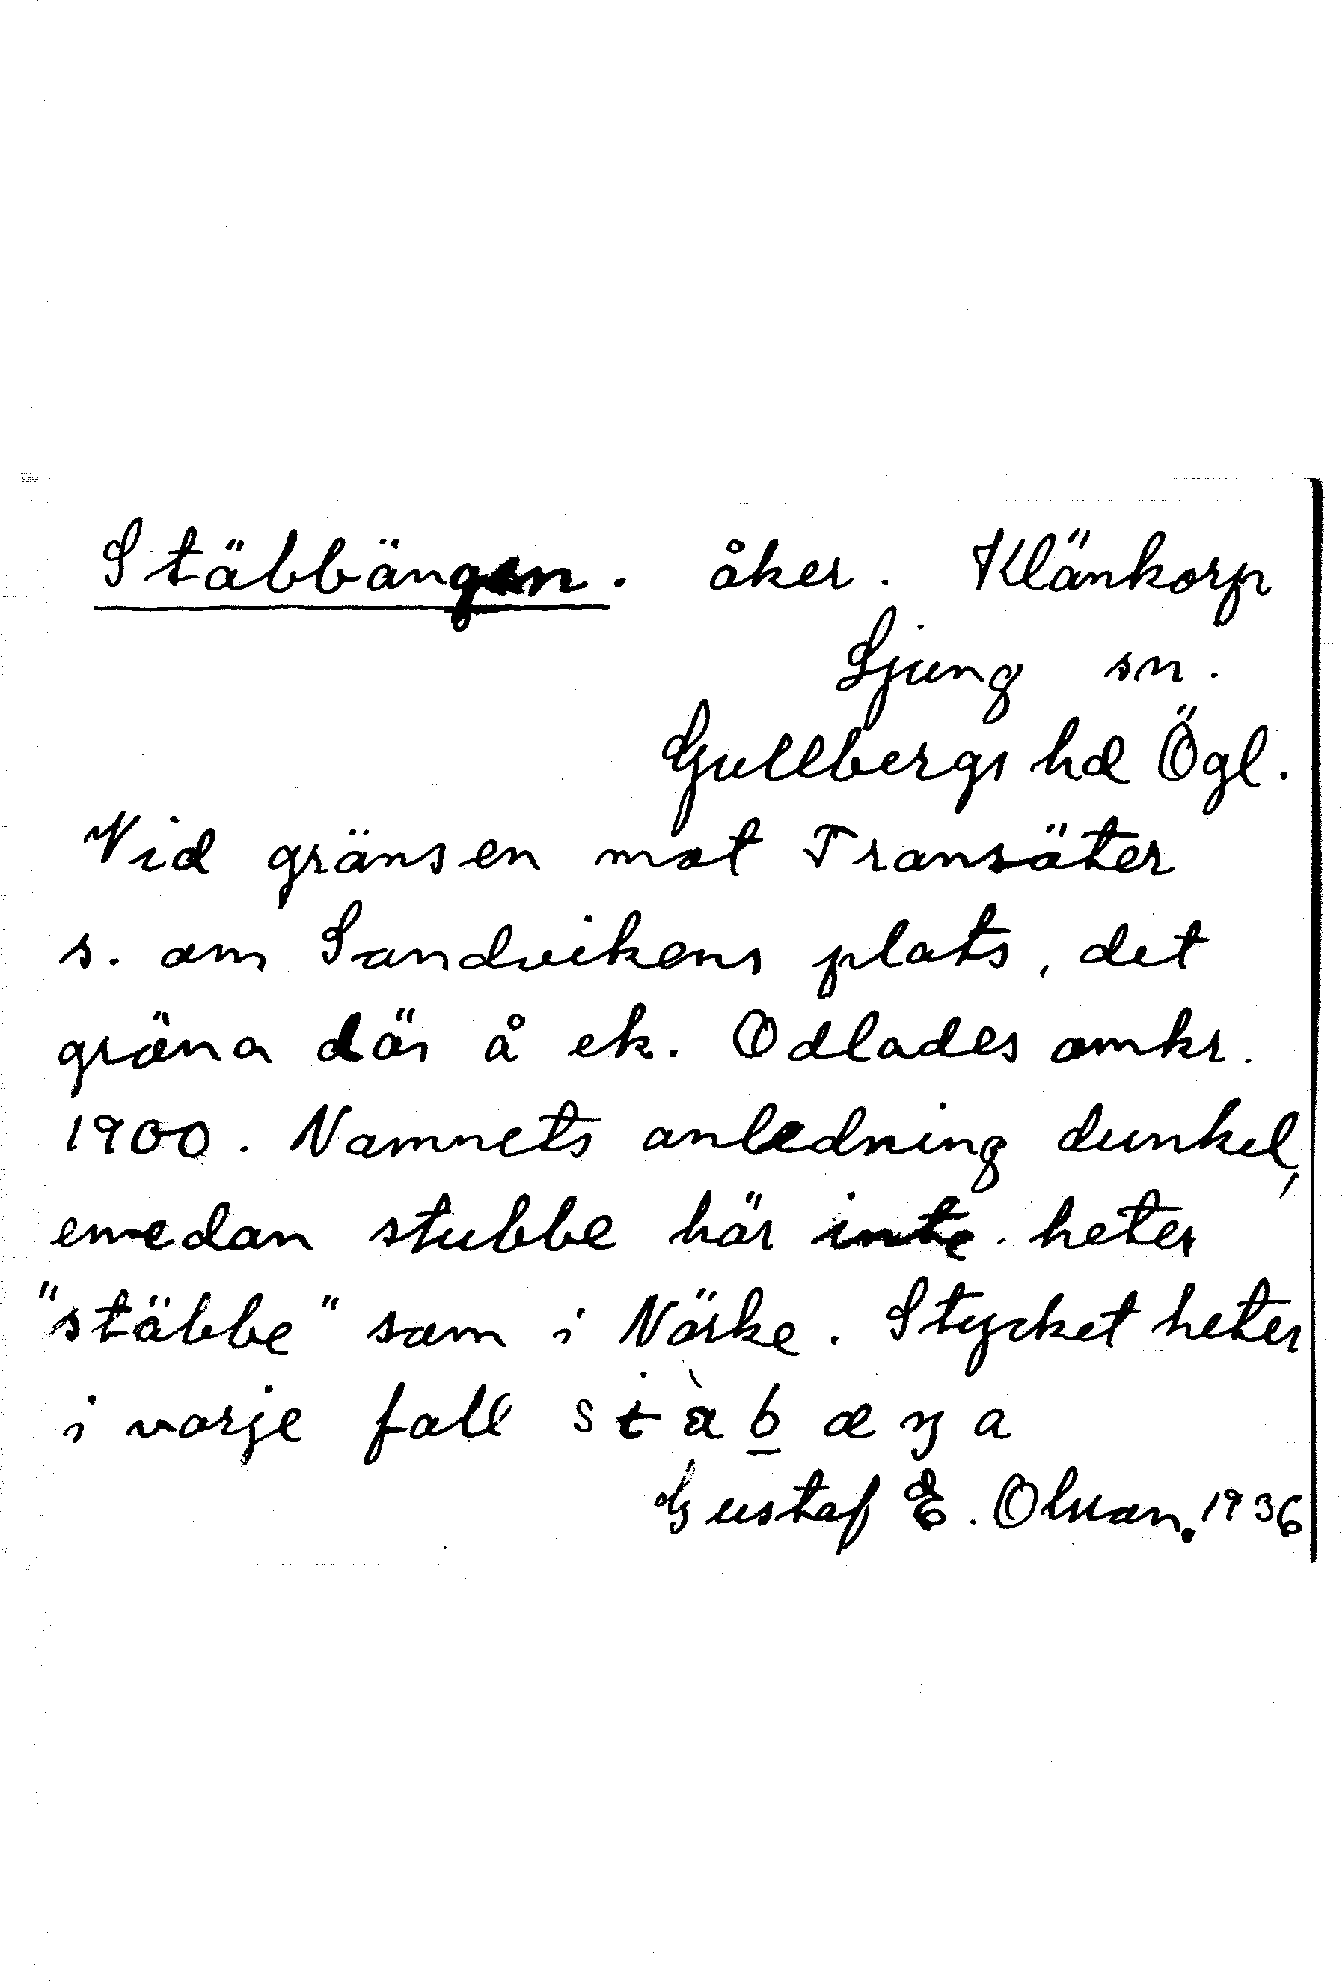 Stäbbängen. åker. Klänkorp
Ljung sn.
Gullbergs hd Ögl.
Vid gränsen mot Transäter
s. om Sandvikens plats, det
gröna där å ek. Odlades omkr.
1900. Namnets anledning dunkel,
emedan stubbe här inte heter
"stäbbe" som i Närke. Stycket heter
i varje fall stàb̲æŋa
Gustaf E. Olsson. 1936